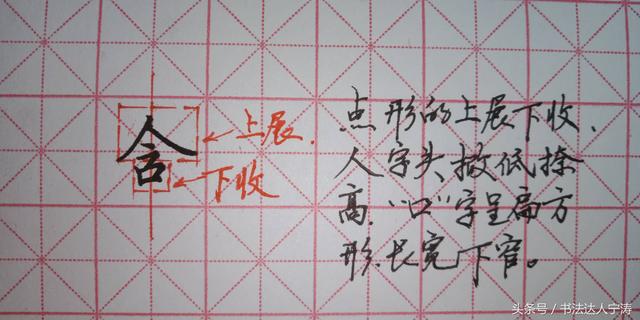 含
上展.
下收
点形的上展下收、
人字头撇低捺
高.“口”字呈扁方
形.长宽下窄。
头条号／书法达人宁涛